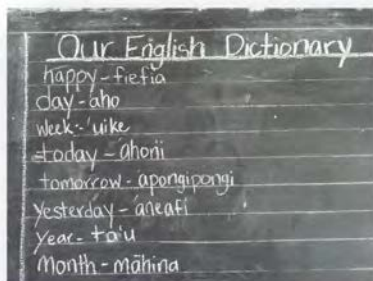 Our English Dictionary
happy - fiefia
day - aho
week - 'uike
today - 'ahoni
tomorrow - apongipongi
yesterday - 'aneafi
year - ta'u
Month - māhina